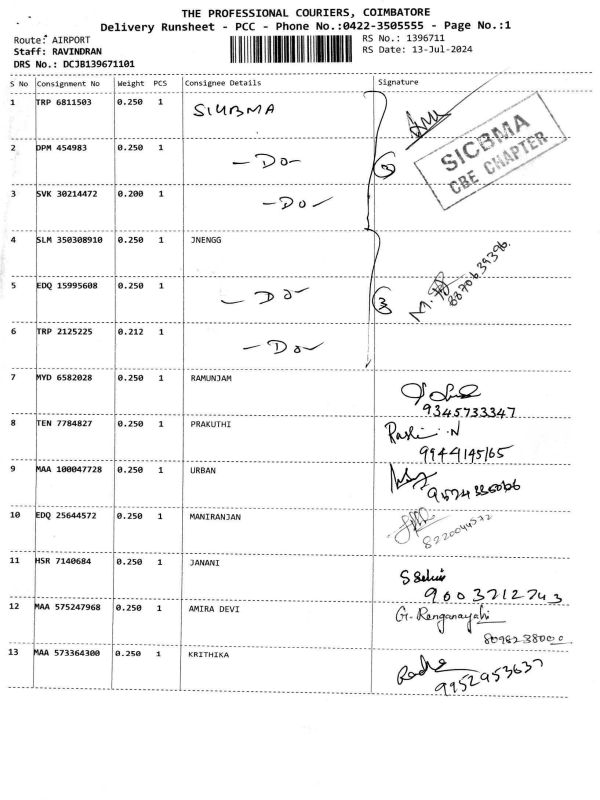 THE PROFESSIONAL COURIERS, COIMBATORE
Delivery Runsheet - PCC - Phone No.:0422-3505555 - Page No.:1
Route: AIRPORT RS No.: 1396711
Staff: RAVINDRAN RS Date: 13-Jul-2024
DRS No.: DCJB139671101
S No Consignment No Weight PCS Consignee Details Signature
1 TRP 6811503 0.250 1 SICBMA
SICBMA
CBE CHAPTER
2 DPM 454983 0.250 1 -Do-
3 SVK 30214472 0.200 1 -Do-
4 SLM 350308910 0.250 1 JNENGG
8870639396
5 EDQ 15995608 0.250 1 -Do- 3
6 TRP 2125225 0.212 1 -Do-
7 MYD 6582028 0.250 1 RAMUNJAM
9345733347
8 TEN 7784827 0.250 1 PRAKUTHI Rashi.N
9944145165
9 MAA 100047728 0.250 1 URBAN
10 EDQ 25644572 0.250 1 MANIRANJAN
8220044572
11 HSR 7140684 0.250 1 JANANI
9003712743
12 MAA 575247968 0.250 1 AMIRA DEVI G. Renganayaki
8098238000
13 MAA 573364300 0.250 1 KRITHIKA Radha
9952953637